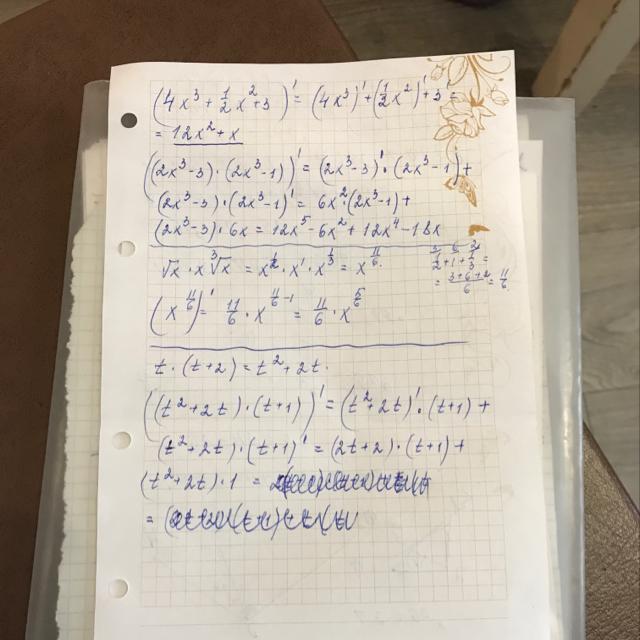 (4x³ + 1/2 x² + 3)' = (4x³)' + (1/2 x²)' + 3 =
= 12x² + x
((2x³-3)·(2x³-1))' = (2x³-3)'·(2x³-1) +
(2x³-3)·(2x³-1)' = 6x²·(2x³-1) +
(2x³-3)·6x = 12x⁵ - 6x² + 12x⁴ - 18x
√x · x ∛x = x^(1/2) · x¹ · x^(1/3) = x^(11/6)
1/2 + 1 + 1/3 =
= (3+6+2)/6 = 11/6
(x^(11/6))' = 11/6 · x^(11/6 - 1) = 11/6 · x^(5/6)
t · (t+2) = t² + 2t.
((t²+2t)·(t+1))' = (t²+2t)'·(t+1) +
(t²+2t)·(t+1)' = (2t+2)·(t+1) +
(t²+2t)·1 =
= (